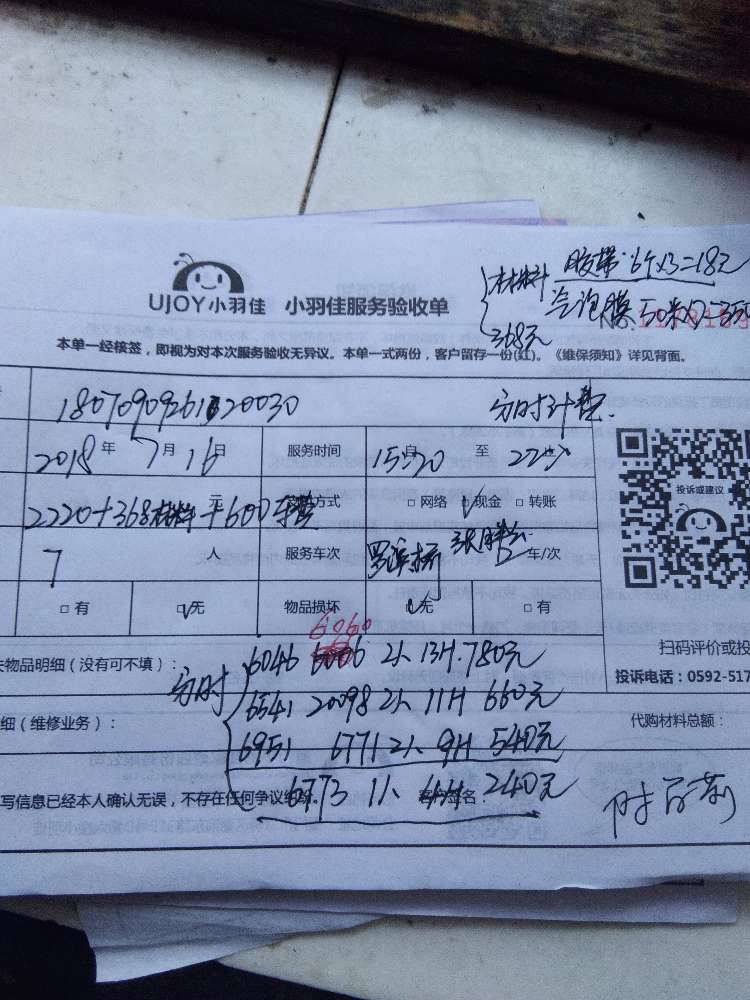 材料 胶带:6个×3=18元
气泡膜 50米×7=350
368元
UJOY小羽佳 小羽佳服务验收单
No.
本单一经核签，即视为对本次服务验收无异议。本单一式两份，客户留存一份(红)。《维保须知》详见背面。
分时计费
2018年 7月16日 服务时间 15:20 至 22
2220+368材料+600车费 元 方式 □网络 □现金 □转账
投诉或建议
7 人 服务车次 车/次
□有 □无 物品损坏 □无 □有
6060
物品明细（没有可不填）： 6046 2人 13H.780元
扫码评价或投
分时 6541 20098 2人 11H 660元
投诉电话：0592-517
细（维修业务）： 6951 6771 2人 9H 540元
代购材料总额：
写信息已经本人确认无误，不存在任何争议 6773 1人 4H 240元
客户签名：